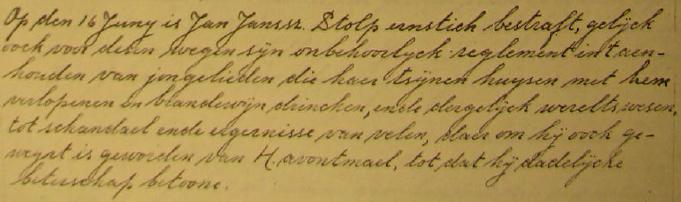 Op den 16 Juny is Jan Jansz. Stolp ernstich bestraft, gelijck
oock voor desen wegen sijn onbehoorlyck reglement int aen-
houden van jongelieden die haer tsijnen huysen met hem
verloopenen en brandewijn drincken, ende dergelijck wereltswesen,
tot schandael ende ergernisse van velen, daer om hij oock ge-
weyrt is geworden van H. avontmael, tot dat hij dadelijcke
beterschap betoone.